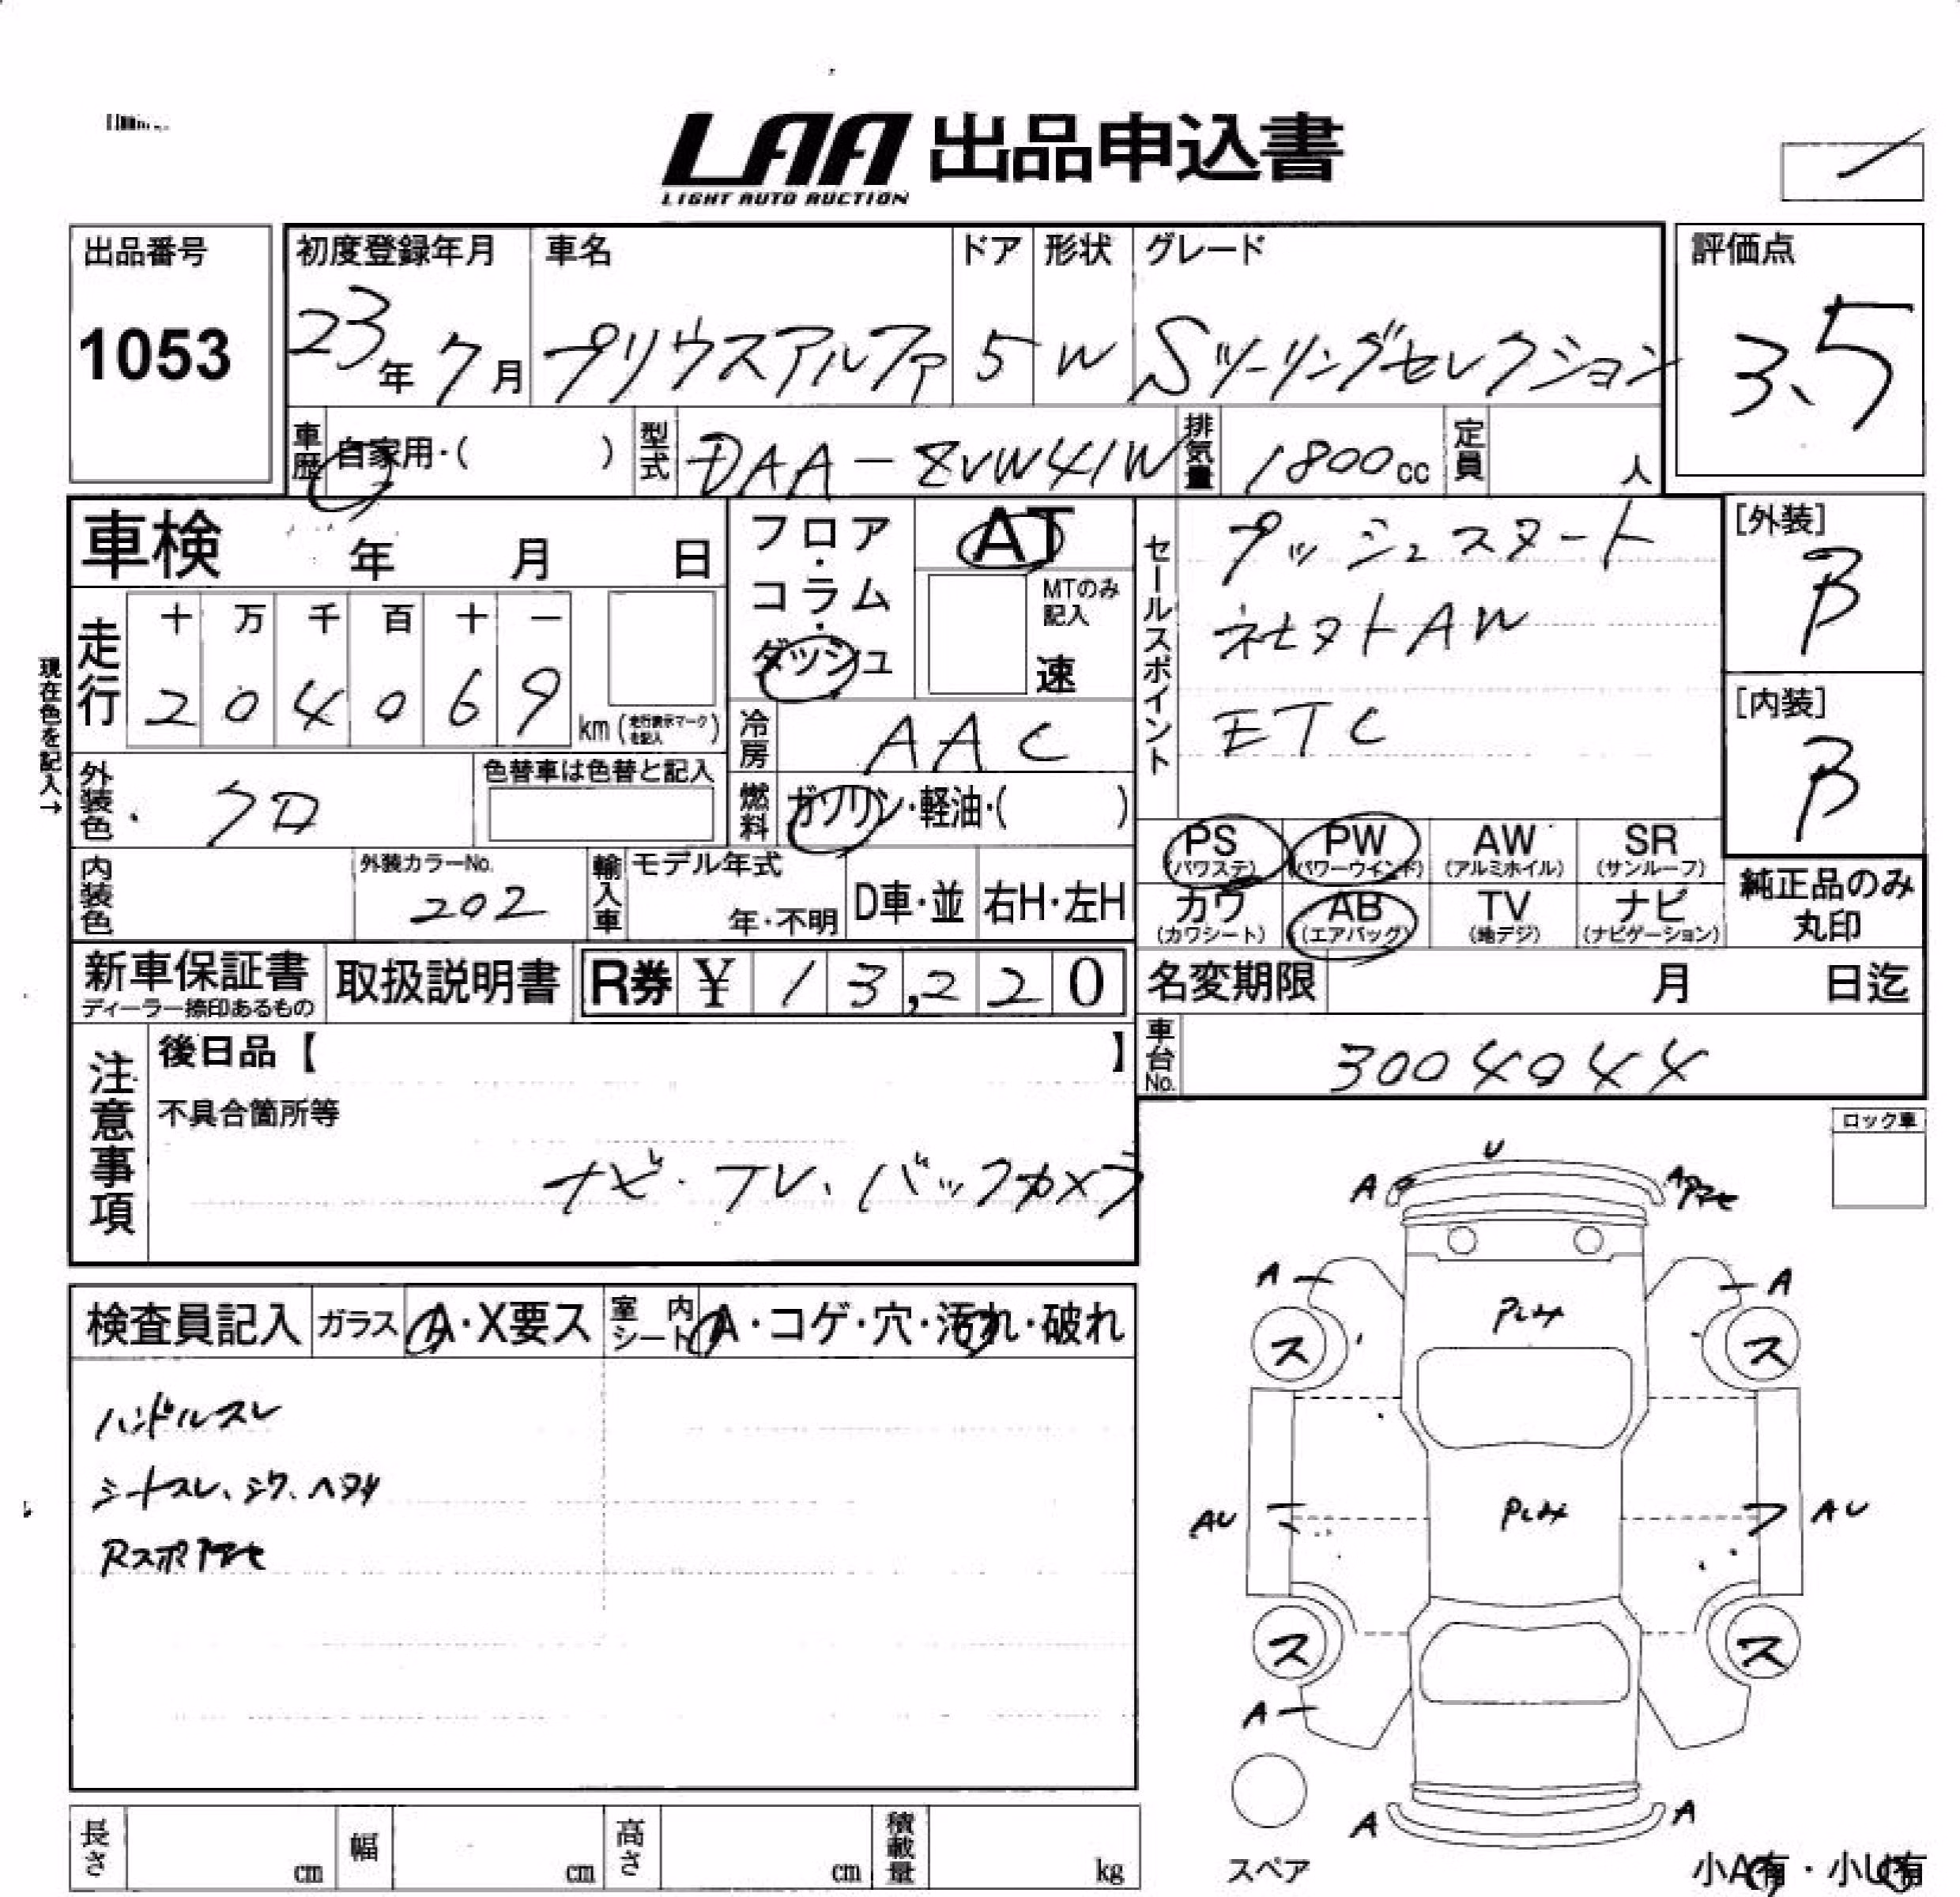 LAA 出品申込書
LIGHT AUTO AUCTION
出品番号
1053
初度登録年月
23年 7月
車名
プリウスアルファ
ドア
5
形状
W
グレード
Sツーリングセレクション
評価点
3.5
車歴 自家用・( )
型式 DAA-ZVW41W
排気量 1800cc
定員 人
車検 年 月 日
フロア・コラム・ダッシュ
AT
MTのみ記入
速
セールスポイント
プッシュスタート
ネセタトAW
ETC
[外装]
B
[内装]
B
現在色を記入→
走行
十 万 千 百 十 一
2 0 4 0 6 9 km (走行表示マークを記入)
冷房 AAC
外装色 クロ
色替車は色替と記入
燃料 ガソリン・軽油・( )
PS (パワステ)
PW (パワーウインド)
AW (アルミホイル)
SR (サンルーフ)
カワ (カワシート)
AB (エアバッグ)
TV (地デジ)
ナビ (ナビゲーション)
純正品のみ丸印
内装色
外装カラーNo. 202
輸入車
モデル年式
年・不明
D車・並
右H・左H
新車保証書
ディーラー捺印あるもの
取扱説明書
R券 ¥ 13,220
名変期限 月 日迄
車台No. 3004044
注意事項
後日品【 】
不具合箇所等
ナビ・フレ、バックカメラ
ロック車
検査員記入
ガラス A・X要ス
室内シート A・コゲ・穴・汚れ・破れ
ハンドルスレ
シートスレ、シワ、ヘタリ
U
A
A
A
A
ス
ス
AU
AU
ス
ス
A
A
A
スペア
小A有・小U有
長さ cm
幅 cm
高さ cm
積載量 kg